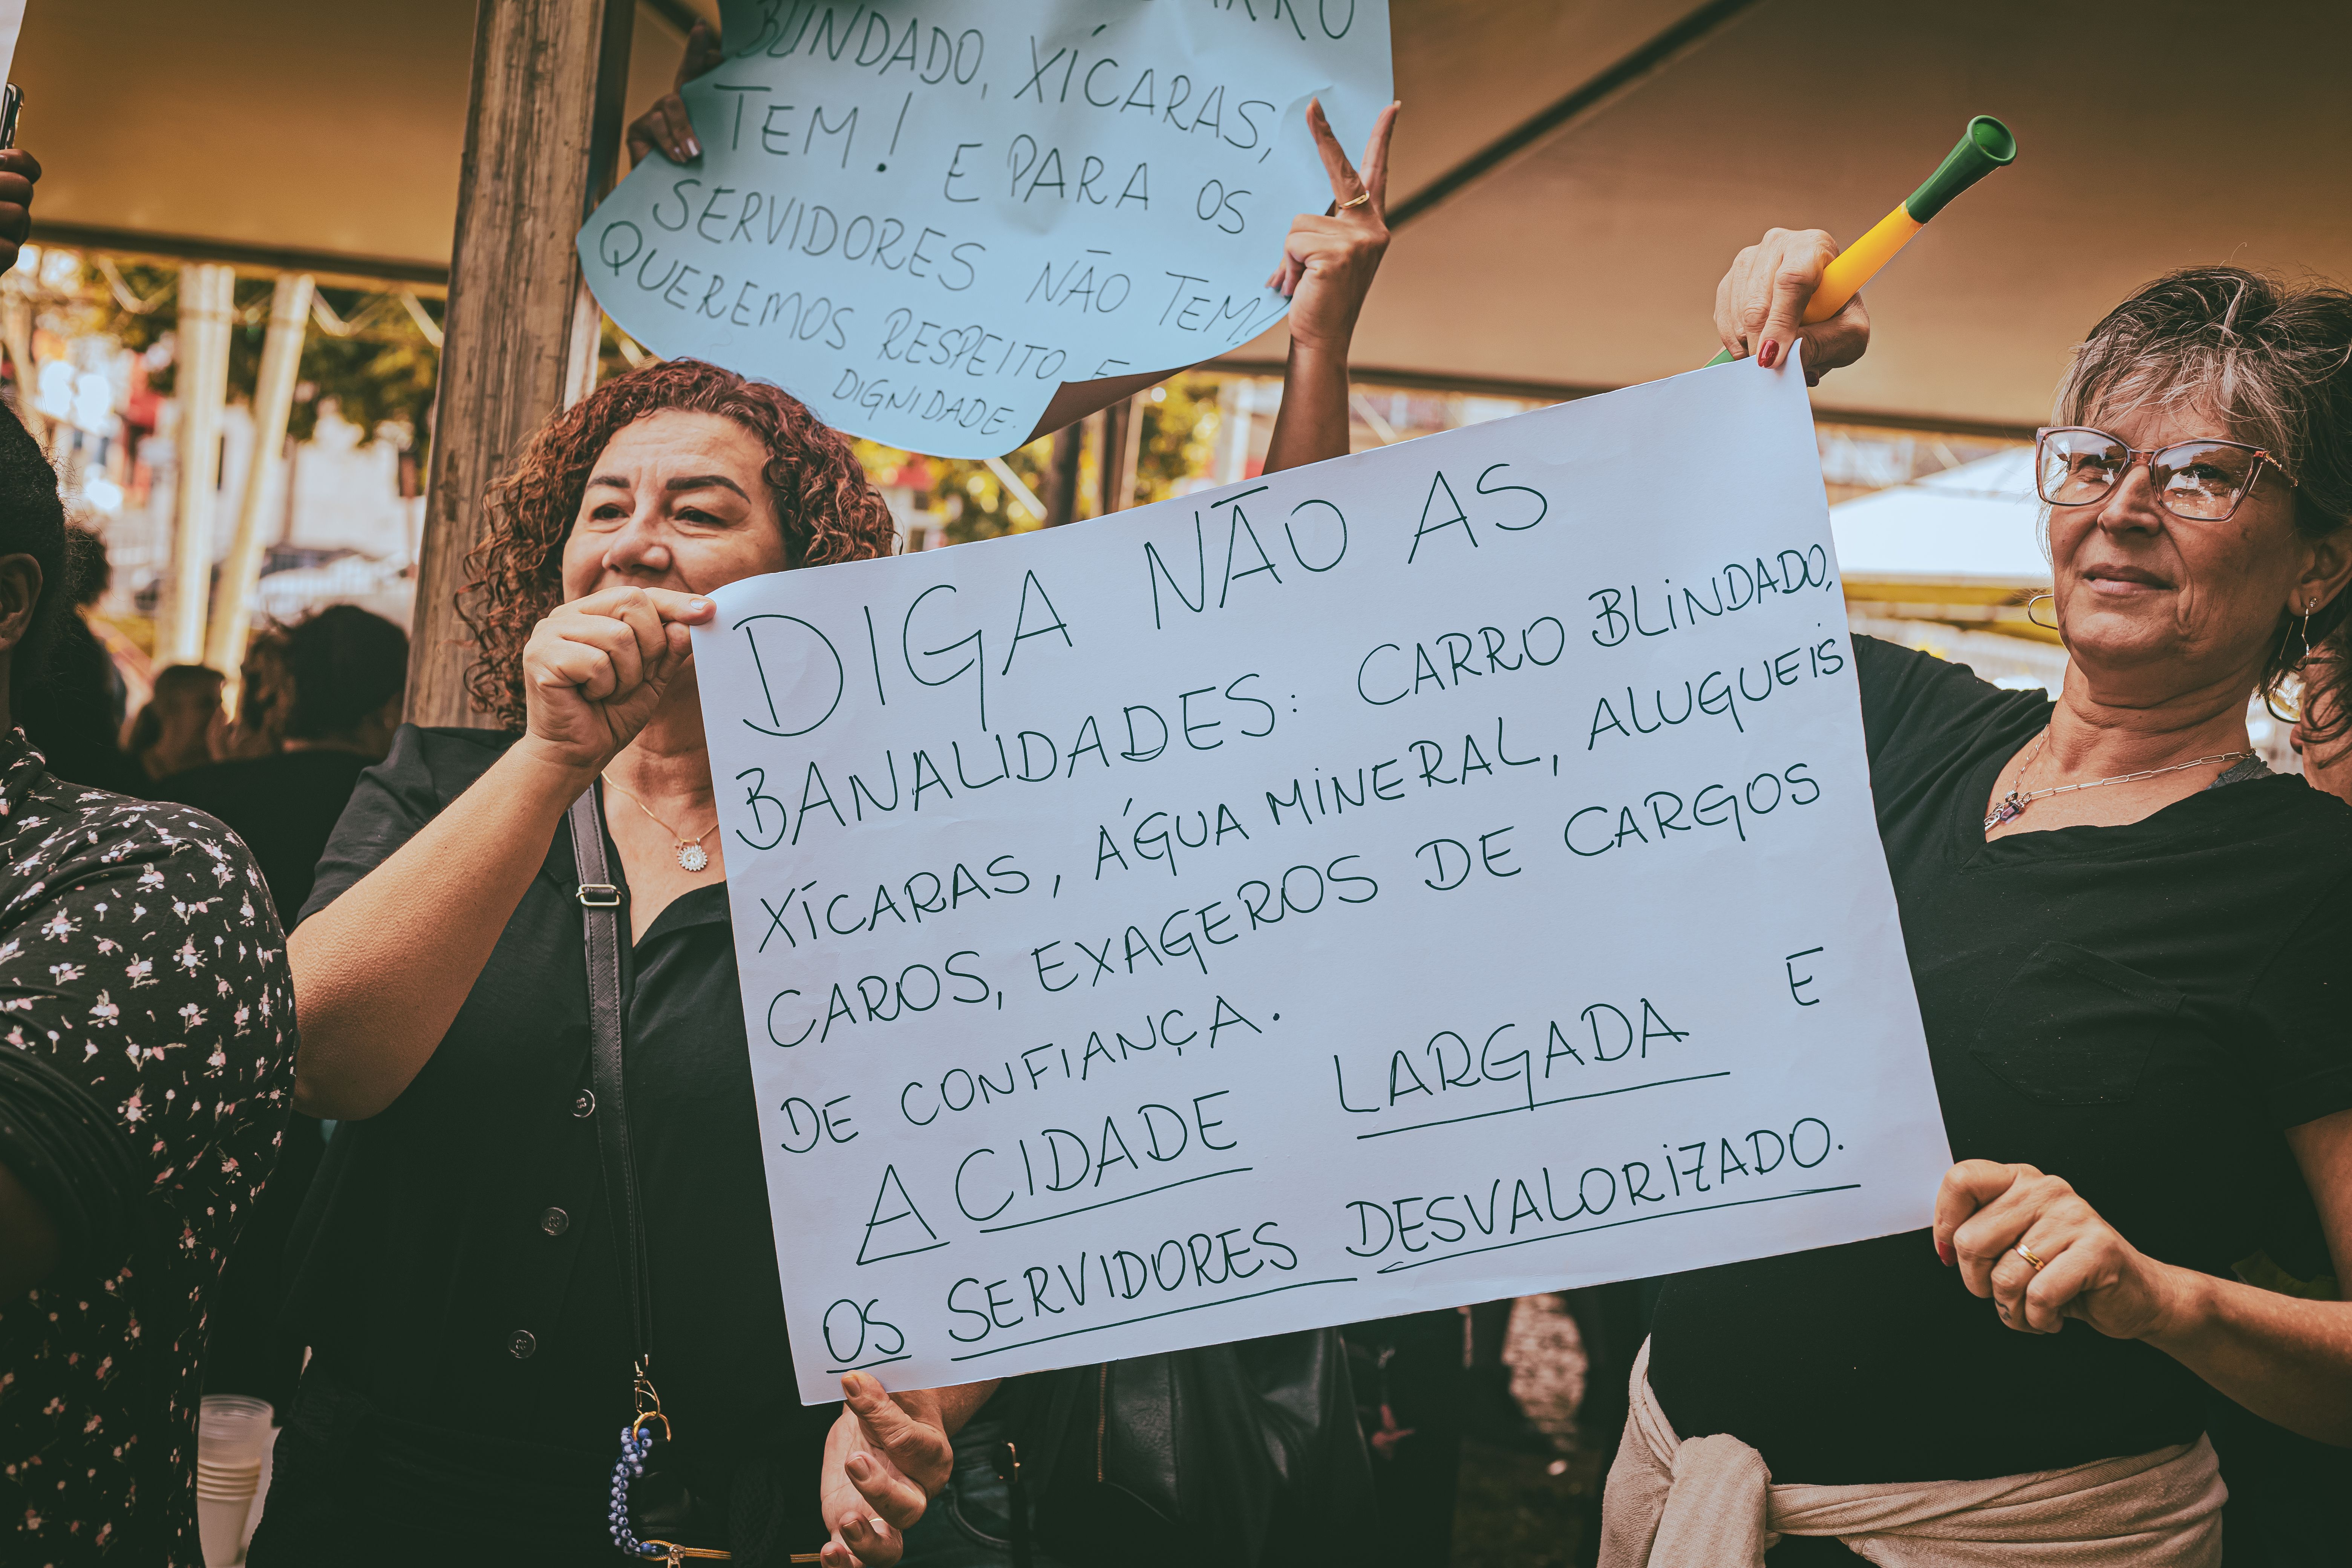 BLINDADO, XÍCARAS,
TEM! E PARA OS
SERVIDORES NÃO TEM?
QUEREMOS RESPEITO E
DIGNIDADE.
DIGA NÃO AS
BANALIDADES: CARRO BLINDADO,
XÍCARAS, ÁGUA MINERAL, ALUGUEIS
CAROS, EXAGEROS DE CARGOS
DE CONFIANÇA.
A CIDADE LARGADA E
OS SERVIDORES DESVALORIZADO.